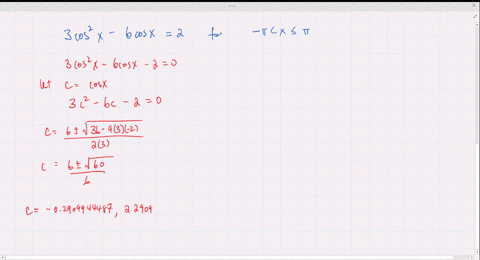 3cos²x - 6cosx = 2 for -π < x ≤ π
3cos²x - 6cosx - 2 = 0
let c = cosx
3c² - 6c - 2 = 0
c = 6 ± √36-4(3)(-2)
2(3)
c = 6 ± √60
6
c = -0.2909944487, 2.2909